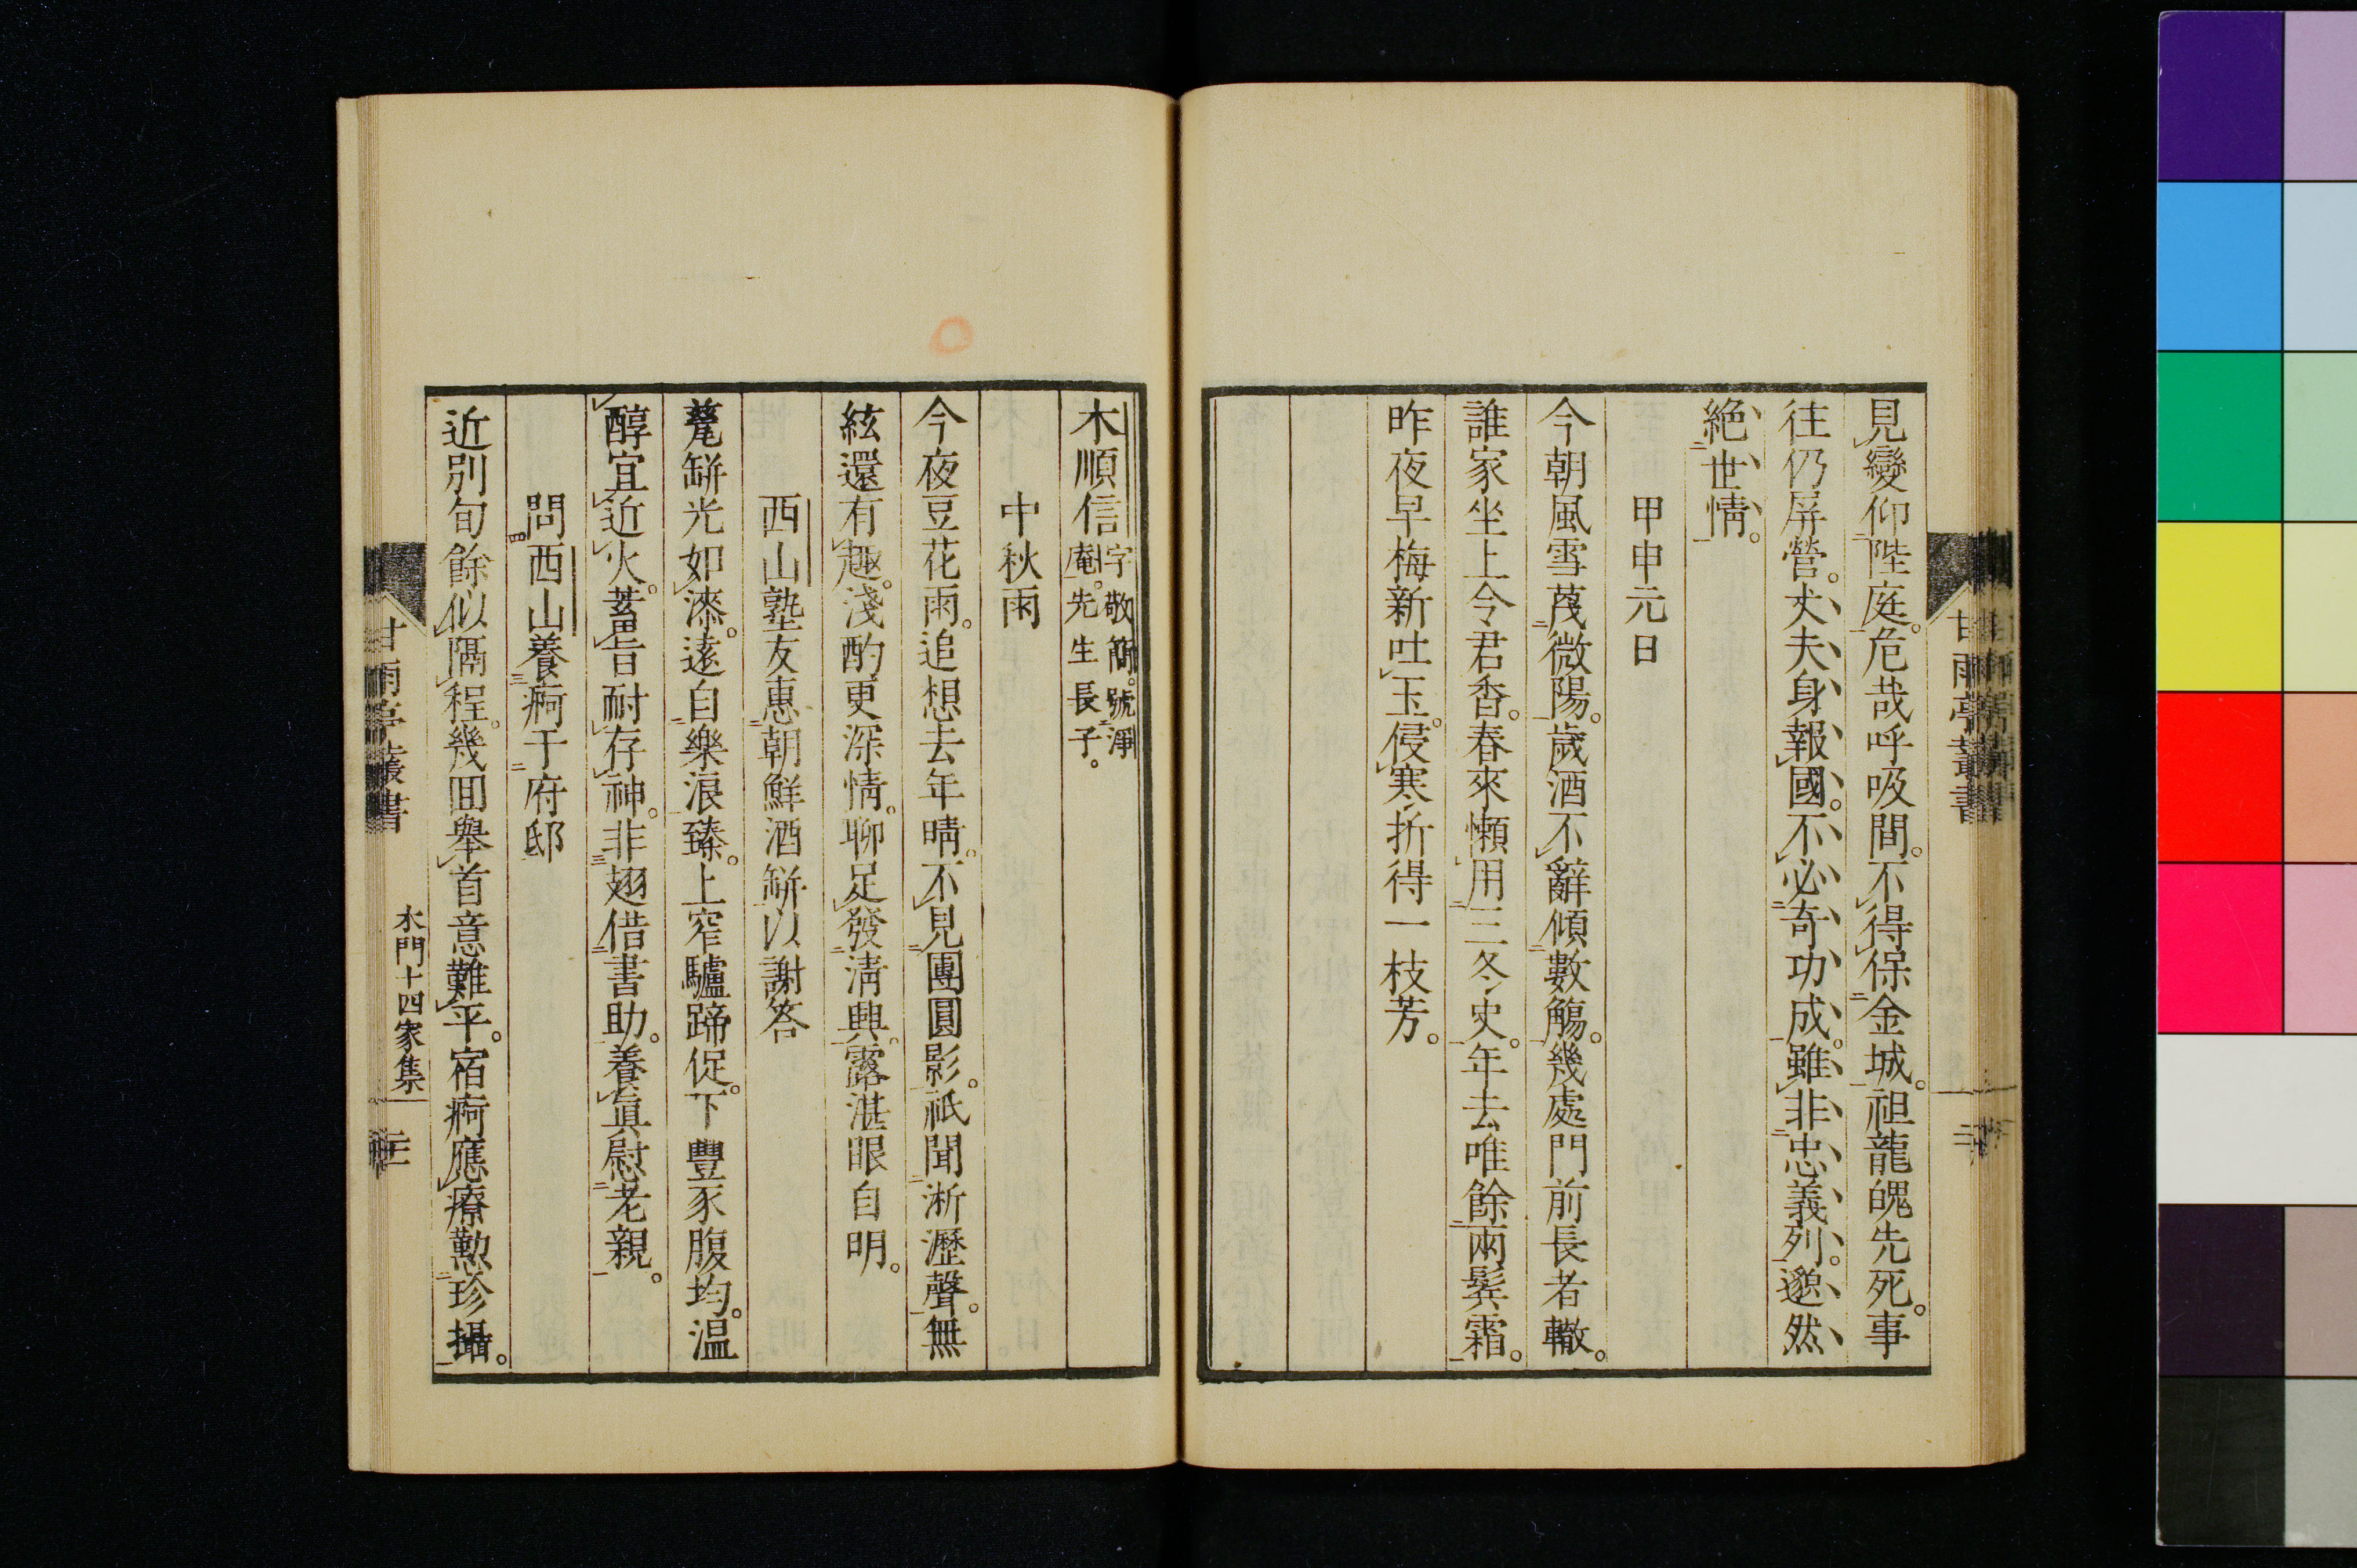 見變仰陛庭。危哉呼吸間。不得保金城。祖龍魄先死。事
往仍屏營。丈夫身報國。不必奇功成。雖非忠義列。邈然
絕世情。
甲申元日
今朝風雪蔑微陽。歲酒不辭傾數觴。幾處門前長者轍。
誰家坐上令君香。春來懶用三冬史。年去唯餘兩鬂霜。
昨夜早梅新吐玉。侵寒折得一枝芳。
甘雨亭叢書
木順信
字敬簡。號淨
庵。先生長子。
中秋雨
今夜豆花雨。追想去年晴。不見團圓影。祇聞淅瀝聲。無
絃還有趣。淺酌更深情。聊足發淸興。露湛眼自明。
西山塾友惠朝鮮酒缾以謝答
甃缾光如漆。遠自樂浪臻。上窄驢蹄促。下豐豕腹均。温
醇宜近火。蓄旨耐存神。非翅借書助。養眞慰老親。
問西山養痾于府邸
近別旬餘似隔程。幾囬舉首意難平。宿痾應療懃珍攝。
甘雨亭叢書
木門十四家集